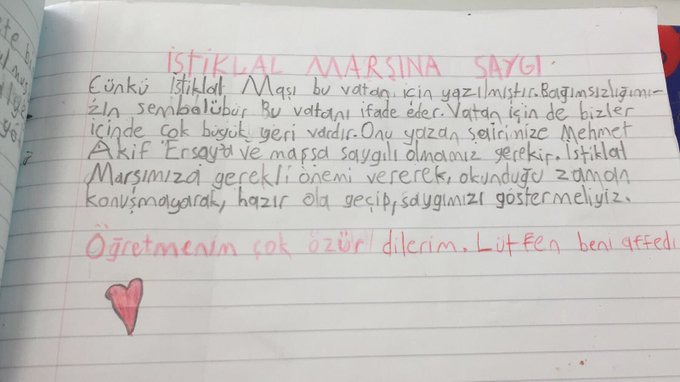 İSTİKLAL MARŞINA SAYGI
Çünkü İstiklal Maşı bu vatan için yazılmıştır. Bağımsızlığımı-
zın sembolübür Bu vatanı ifade eder. Vatan için de bizler
içinde çok büyük yeri vardır. Onu yazan şairimize Mehmet
Akif Ersoya ve marşa saygılı olmamız gerekir. İstiklal
Marşımıza gerekli önemi vererek, okunduğu zaman
konuşmayarak, hazır ola geçip, saygımızı göstermeliyiz.
Öğretmenim çok özür dilerim. Lütfen beni affedi